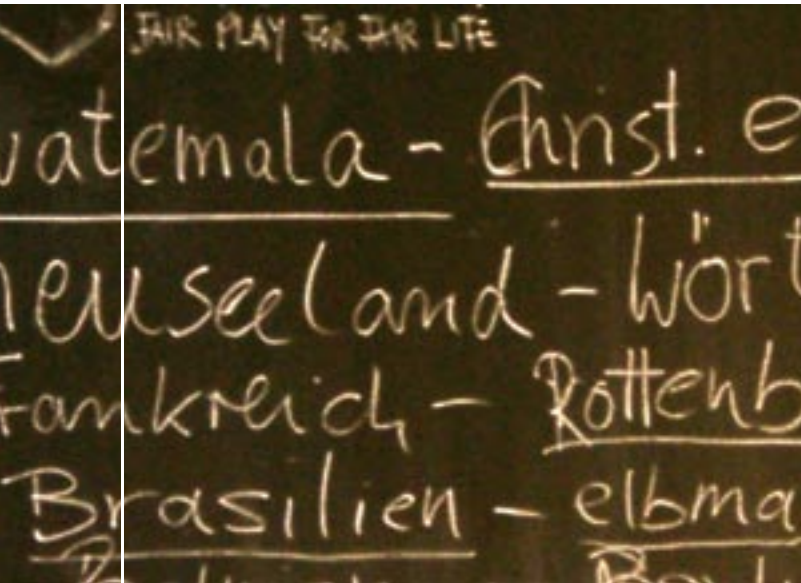 FAIR PLAY FOR FAIR LIFE
uatemala - Christ. e
neuseeland - Wört
Frankreich - Rottenb
Brasilien - elbma